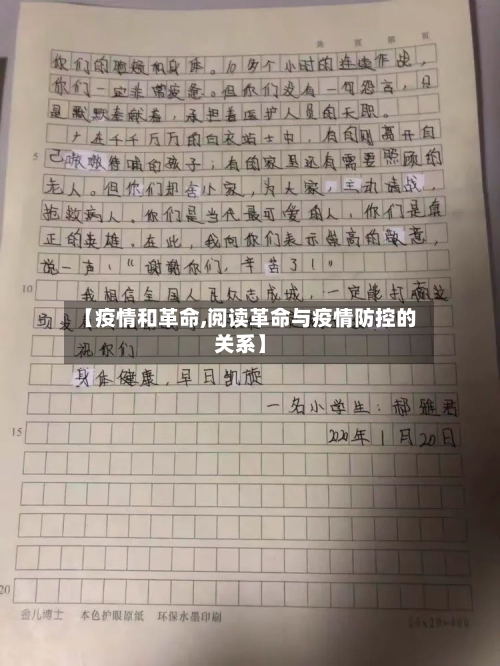 共 页 第 页
你们的眼睛和身体。10多个小时的连续作战，
你们一定非常疲惫。但你们没有一句怨言，只
是默默奉献着，承担着医护人员的天职。
在千千万万的白衣战士中，有的刚离开自
5 己嗷嗷待哺的孩子；有的家里还有需要照顾的
老人。但你们却舍小家，为大家，主动请战，
抢救病人。你们是当代最可爱的人，你们是真
正的英雄。在此，我向你们表示崇高的敬意，
说一声：“谢谢你们，辛苦了！”
10 我相信全国人民众志成城，一定能打赢这
【疫情和革命,阅读革命与疫情防控的
关系】
祝你们
身体健康，早日凯旋
一名小学生：郝雅君
15 2020年1月20日
20
金儿博士 本色护眼原纸 环保水墨印刷